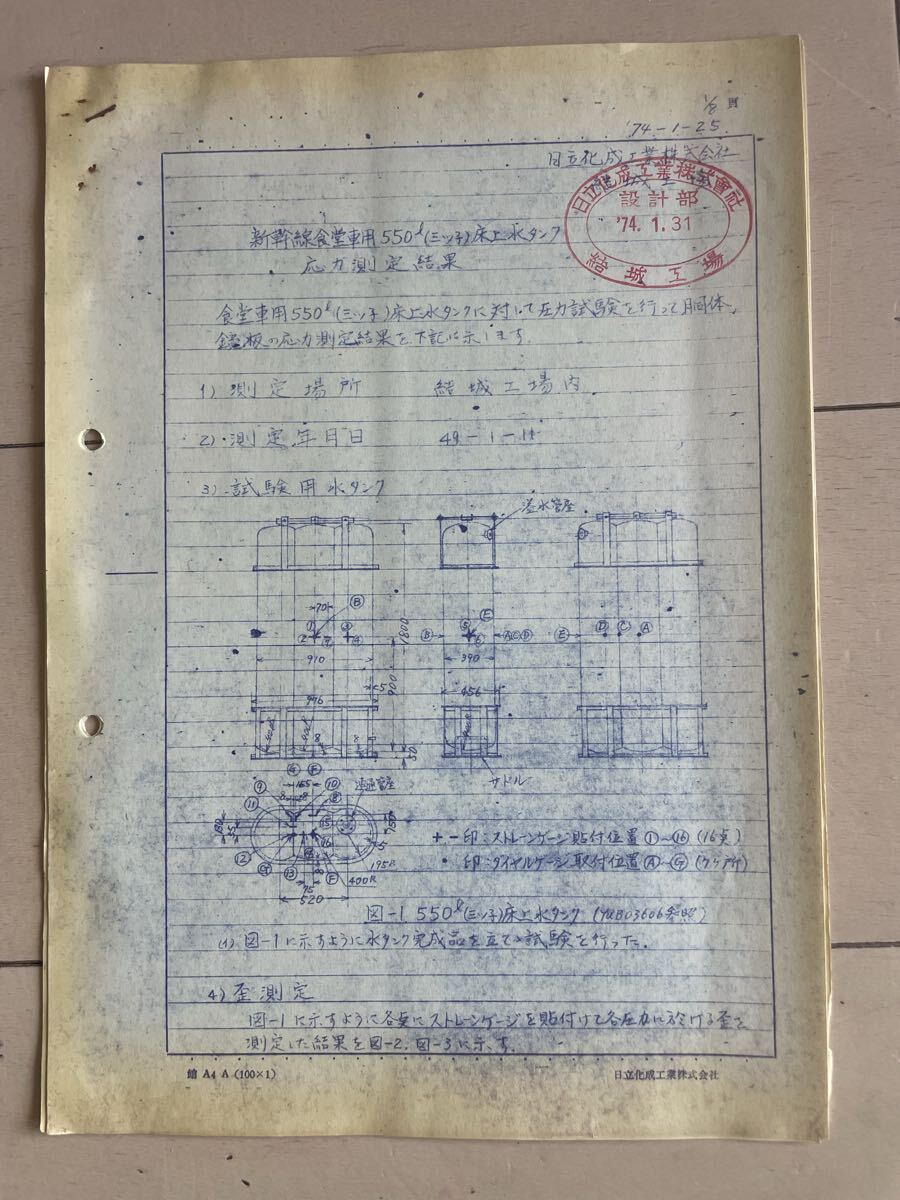 1/8 頁
'74-1-25
日立化成工業株式会社
日立化成工業株式會社
設計部
'74. 1. 31
結城工場
新幹線食堂車用550ℓ(三ッ子)床上水タンク
応力測定結果
食堂車用550ℓ(三ッ子)床上水タンクに対して圧力試験を行って胴体、
鏡板の応力測定結果を下記に示します。
1) 測定場所 結城工場内
2) 測定年月日 49-1-11
3) 試験用水タンク
溢水管座
70 Ⓑ
Ⓔ
① ③
② ④
⑤
⑥
Ⓑ ⒶⒸⒹ Ⓔ Ⓓ Ⓒ Ⓐ
1800
910 390
900
5
976 456
50
サドル
Ⓖ Ⓕ
165
⑨ ⑩ 連通管座
⑪
⑫ ⑬
195R
400R
75
520
+ - 印:ストレンゲージ貼付位置 ①~⑯ (16点)
• 印:ダイヤルゲージ取付位置 Ⓐ~Ⓖ (7ヶ所)
図-1 550ℓ(三ッ子)床上水タンク (YUB03606参照)
(1) 図-1に示すように水タンク完成品を立てて試験を行った。
4) 歪測定
図-1に示すように各点にストレンゲージを貼付けて各圧力に於ける歪を
測定した結果を図-2, 図-3に示す。
A4 A (100×1) 日立化成工業株式会社